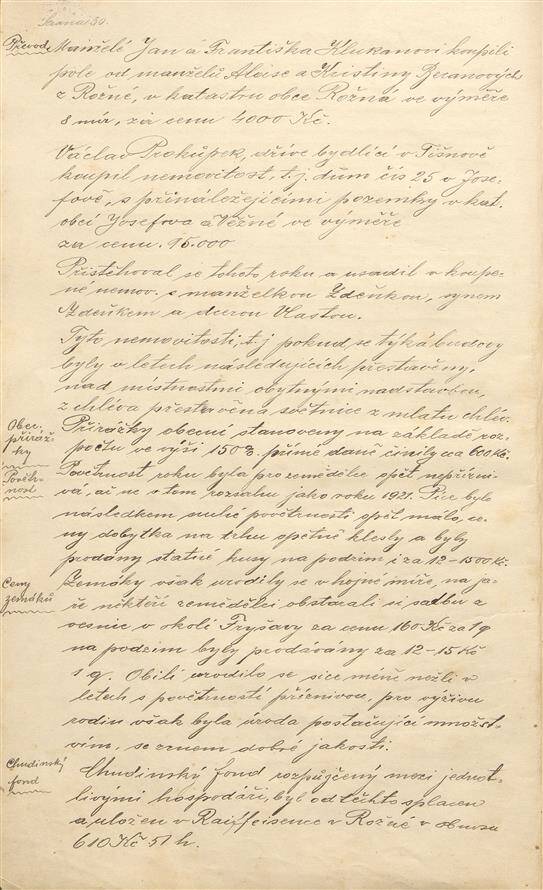 Strana 30.
Převod. Manželé Jan a Františka Klukanovi koupili
pole od manželů Aloise a Kristiny Beranových
z Rožné, v katastru obce Rožná ve výměře
8 mír, za cenu 4000 Kč.
Václav Prokůpek, dříve bydlící v Tišnově
koupil nemovitost, t.j. dům čís 25 v Jose-
fově, s přináležejícími pozemky v kat.
obcí Josefova a Věžné ve výměře
za cenu. 15.000
Přistěhoval se tohoto roku a usadil v koupe-
né nemov. s manželkou Zdeňkou, synem
Zdeňkem a dcerou Vlastou.
Tyto nemovitosti, t.j pokud se týká budovy
byly v letech následujících přestavěny,
nad místnostmi obytnými nadstavbou,
z chléva přestavěna světnice z mlatu chlév.
Obec.
přiráž-
ky
Přirážky obecní stanoveny na základě roz-
počtu ve výši 150% přímé daně činily cca 600 Kč.
Povětr-
nost
Povětrnost roku byla pro zemědělce opět nepřízni-
vá, ač ne s tom rozsahu jako roku 1921. Píce bylo
následkem suché povětrnosti opět málo, ce-
ny dobytka na trhu opětně klesly a byly
prodány statné kusy na podzim i za 12-1500 Kč.
Ceny
zemáků
Zemáky však urodily se v hojné míře, na ja-
ře někteří zemědělci obstarali si sadbu z
vesnic v okolí Fryšavy za cenu 160 Kč za 1 q
na podzim byly prodávány za 12-15 Kč
1 q. Obilí urodilo se sice méně nežli v
letech s povětrností příznivou, pro výživu
rodin však byla úroda postačující množst-
vím, se zrnem dobré jakosti.
Chudinský
fond
Chudinský fond rozpůjčený mezi jednot-
livými hospodáři, byl od těchto splacen
a uložen v Raiffeisence v Rožné v obnosu
610 Kč 51 h.